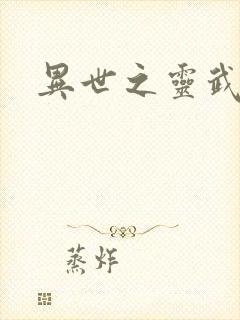 異世之靈武
蒸炸